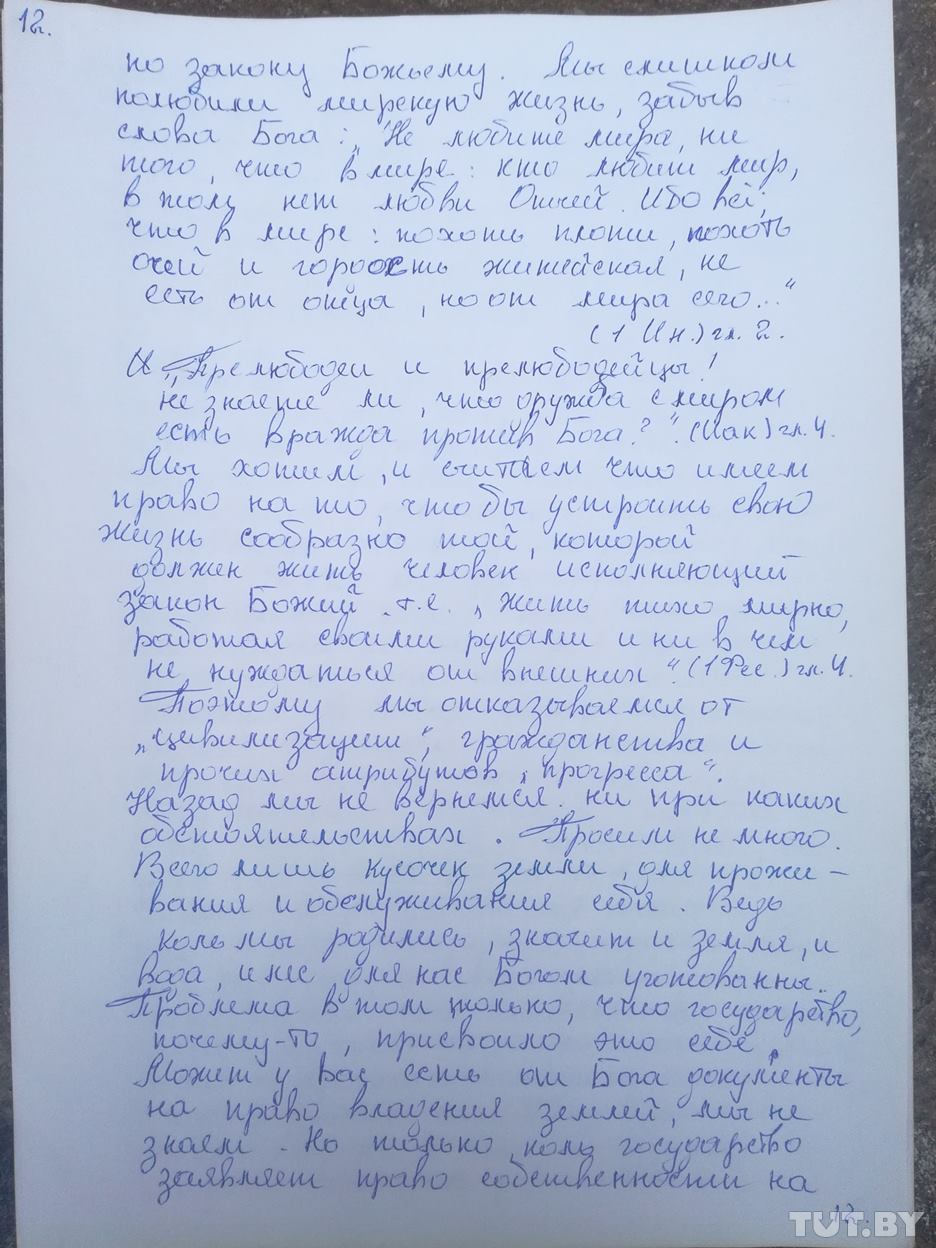 12.
по закону Божьему. Мы слишком
полюбили мирскую жизнь, забыв
слова Бога: „Не любите мира, ни
того, что в мире: кто любит мир,
в том нет любви Отчей. Ибо всё,
что в мире: похоть плоти, похоть
очей и гордость житейская, не
есть от отца, но от мира сего..."
(1 Ин.) гл. 2.
И „Прелюбодеи и прелюбодейцы!
не знаете ли, что дружба с миром
есть вражда против Бога?". (Иак) гл. 4.
Мы хотим, и считаем что имеем
право на то, чтобы устроить свою
жизнь сообразно той, которой
должен жить человек исполняющий
закон Божий. т.е. „жить тихо, мирно,
работая своими руками и ни в чем
не нуждаться от внешних". (1 Фес.) гл. 4.
Поэтому мы отказываемся от
„цивилизации", гражданства и
прочих атрибутов „прогресса".
Назад мы не вернемся ни при каких
обстоятельствах. Просим не много.
Всего лишь кусочек земли, для прожи-
вания и обслуживания себя. Ведь
коль мы родились, значит и земля, и
вода, и лес для нас Богом уготованны.
Проблема в том только, что государство,
почему-то, присвоило это себе.
Может у вас есть от Бога документы
на право владения землей, мы не
знаем. Но только коль государство
заявляет право собственности на
12.
TUT.BY